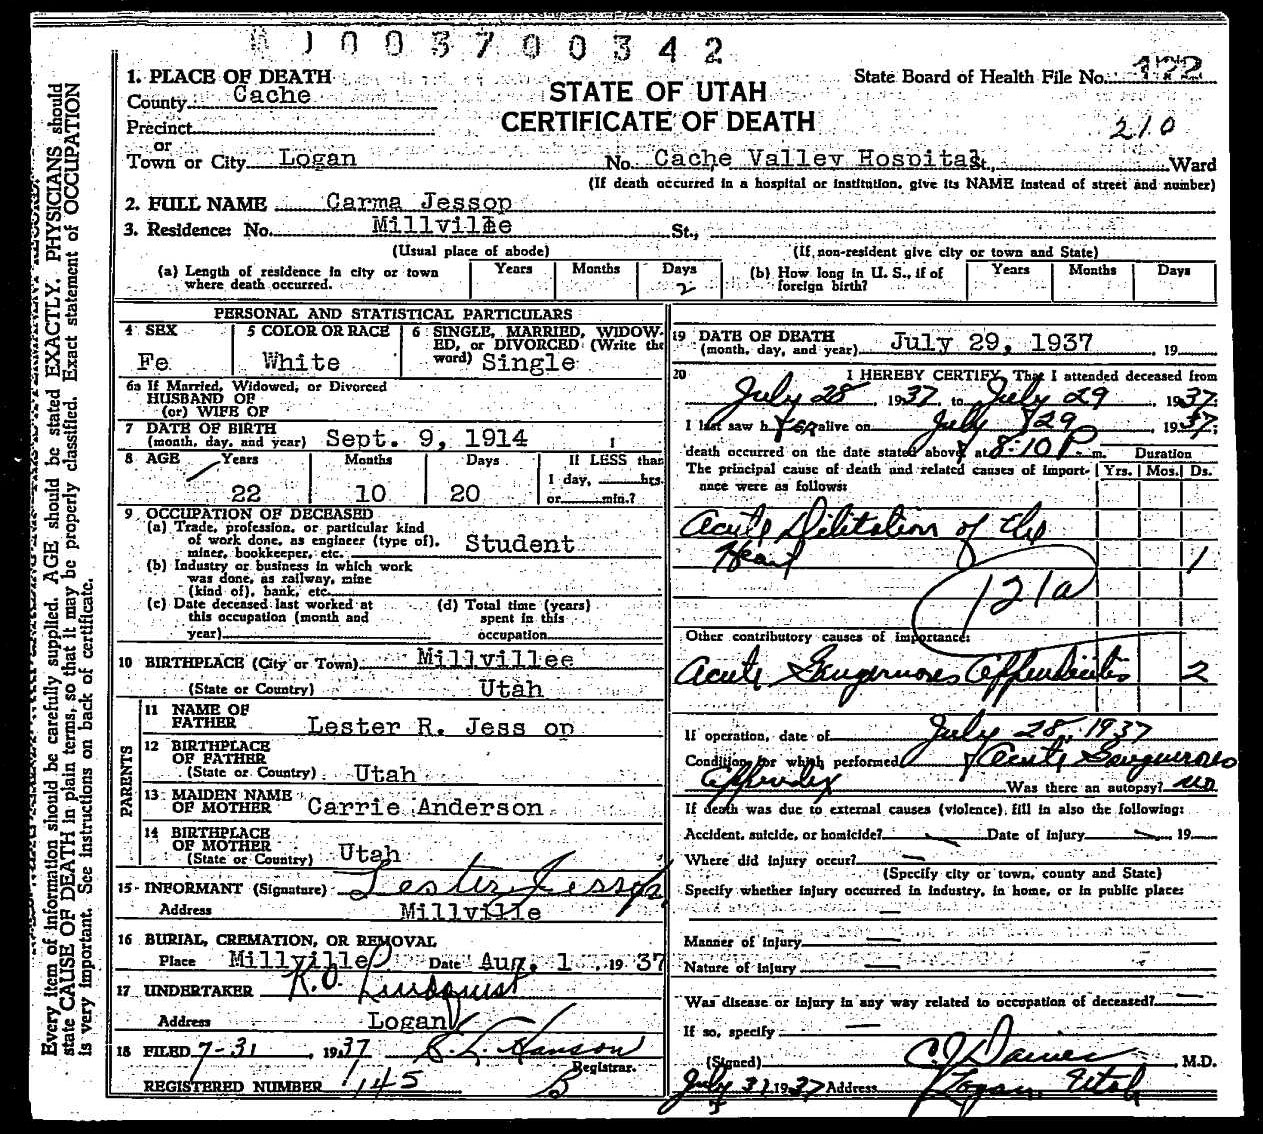 003700342
1. PLACE OF DEATH
County Cache
Precinct
or
Town or City Logan
STATE OF UTAH
CERTIFICATE OF DEATH
State Board of Health File No. 172
210
No. Cache Valley Hospital St., Ward
(If death occurred in a hospital or institution, give its NAME instead of street and number)
2. FULL NAME Carma Jessop
3. Residence: No. Millville St.,
(Usual place of abode) (If non-resident give city or town and State)
(a) Length of residence in city or town where death occurred. Years Months Days 2
(b) How long in U. S., if of foreign birth? Years Months Days
PERSONAL AND STATISTICAL PARTICULARS
4 SEX Fe
5 COLOR OR RACE White
6 SINGLE, MARRIED, WIDOWED, or DIVORCED (Write the word) Single
6a If Married, Widowed, or Divorced
HUSBAND OF
(or) WIFE OF
7 DATE OF BIRTH
(month, day, and year) Sept. 9, 1914
8 AGE Years Months Days If LESS than
1 day, hrs.
22 10 20 or min.?
9 OCCUPATION OF DECEASED
(a) Trade, profession, or particular kind
of work done, as engineer (type of),
miner, bookkeeper, etc. Student
(b) Industry or business in which work
was done, as railway, mine
(kind of), bank, etc.
(c) Date deceased last worked at
this occupation (month and
year)
(d) Total time (years)
spent in this
occupation
10 BIRTHPLACE (City or Town) Millvillee
(State or Country) Utah
PARENTS
11 NAME OF
FATHER Lester R. Jess op
12 BIRTHPLACE
OF FATHER
(State or Country) Utah
13 MAIDEN NAME
OF MOTHER Carrie Anderson
14 BIRTHPLACE
OF MOTHER
(State or Country) Utah
15 INFORMANT (Signature) Lester Jessop
Address Millville
16 BURIAL, CREMATION, OR REMOVAL
Place Millville Date Aug. 1, 1937
17 UNDERTAKER R.O. Lindquist
Address Logan
18 FILED 7-31, 1937 Hanson
Registrar.
REGISTERED NUMBER 145 B
19 DATE OF DEATH
(month, day, and year) July 29, 1937, 19
20 I HEREBY CERTIFY, That I attended deceased from
July 28, 1937, to July 29, 1937:
I last saw her alive on July 29, 1937:
death occurred on the date stated above, at 8:10 P. m. Duration
The principal cause of death and related causes of importance were as follows: Yrs. Mos. Ds.
Acute Dilitation of the
Heart 1
121a
Other contributory causes of importance:
Acute Gangernores Appendicitis 2
If operation, date of July 28, 1937
Condition for which performed Acute Gangernores
Appendix Was there an autopsy? no
If death was due to external causes (violence) fill in also the following:
Accident, suicide, or homicide? Date of injury 19
Where did injury occur?
(Specify city or town, county and State)
Specify whether injury occurred in industry, in home, or in public place:
Manner of injury
Nature of injury
Was disease or injury in any way related to occupation of deceased?
If so, specify
(Signed) C J Daines, M.D.
July 31 1937 Address Logan, Utah
Every item of information should be carefully supplied. AGE should be stated EXACTLY. PHYSICIANS should
state CAUSE OF DEATH in plain terms, so that it may be properly classified. Exact statement of OCCUPATION
is very important. See instructions on back of certificate.